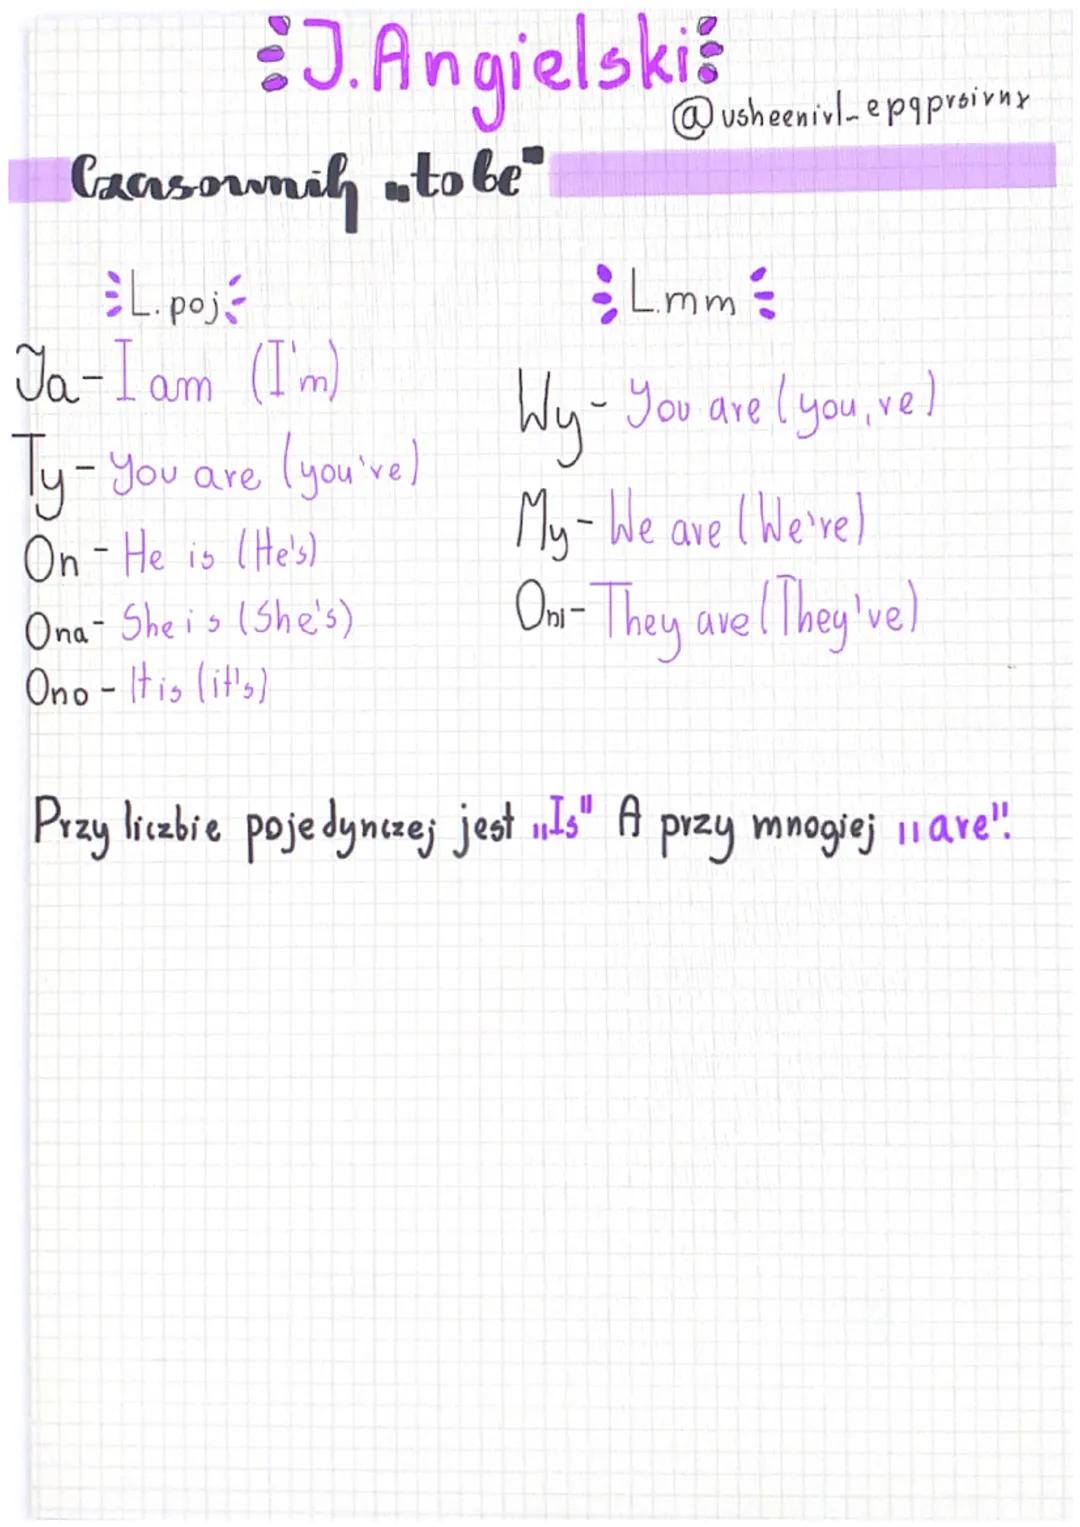 J. Angielski
@usheenirl_epqprsirnx
Czasownik „to be"
L. poj
Ja - I am (I'm)
Ty - You are (you're)
On - He is (He's)
Ona - She is (She's)
Ono - It is (it's)
L.mm
Wy - You are (you,re)
My - We are (We're)
Oni - They are (They're)
Przy liczbie pojedynczej jest „Is" A przy mnogiej „are".